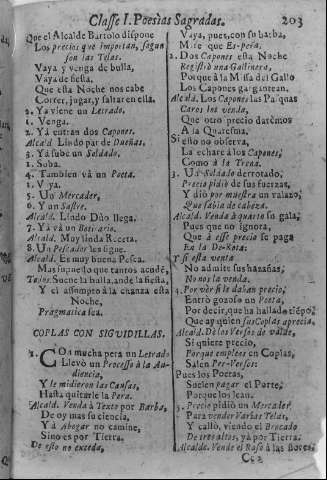 Classe I. Poesias Sagradas. 203
Que el Alcalde Bartolo dispone
Los precios que importan, segun
son las Telas.
Vaya y venga de bulla,
Vaya de fiesta,
Que esta Noche nos cabe
Correr, jugar, y saltar en ella.
2. Ya viene un Letrado.
1. Venga.
2. Yà entran dos Capones.
Alcald. Lindo par de Dueñas.
3. Yà sube un Soldado,
1. Suba.
4. Tambien và un Poeta.
1. Vaya.
5. Un Mercader,
6. Y un Sastre.
Alcald. Lindo Dúo llega.
7. Yà và un Boticario.
Alcald. Muy linda Receta.
8. Un Pescador les sigue.
Alcald. Es muy buena Pesca.
Mas supuesto que tantos acudē,
Todos. Suene la bulla, ande la fiesta,
Y el assumpto à la chanza esta
Noche,
Pragmatica sea.
COPLAS CON SIGUIDILLAS.
1. COn mucha pera un Letrado
Llevò un Processo à la Au-
diencia,
Y le midieron las Causas,
Hasta quitarle la Pera.
Alcald. Venda à Texto por Barba,
De oy mas su ciencia,
Y à Abogar no camine,
Sino es por Tierra.
De esto no exceda,
Vaya, pues, con su barba,
Mire que Es-pesa.
2. Dos Capones esta Noche
Registrò una Gallinera,
Porque à la Missa del Gallo
Los Capones gargantean.
Alcald. Los Capones las Pasquas
Caros los venda,
Que otro precio darémos
A la Quaresma.
Si esto no observa,
La echare à los Capones,
Como à la Trena.
3. Un Soldado derrotado,
Precio pidió de sus fuerzas,
Y diò por muestra un valazo,
Que sabia de cabeza.
Alcald. Venda à quarto su gala,
Pues que no ignora,
Que à esse precio se paga
En la De-Rota:
Y si esta venta
No admite sus hazañas,
No nos la venda.
4. Por vèr si le daban precio,
Entrò gozoso un Poeta,
Por decir, que ha hallado tiēpo,
Que apliquen sus Coplas aprecia.
Alcald. De los Versos de valde,
Si quiere precio,
Porque emplees en Coplas,
Salen Per-Versos:
Pues los Poetas,
Suelen pagar el Porte,
Porque los lean.
5. Precio pidió un Mercader,
Para vender Varias Telas,
Y callò, viendo el Brocado
De tres altos, yà por Tierra.
Alcalde. Vende el Raso à las Boces,
Cc 2